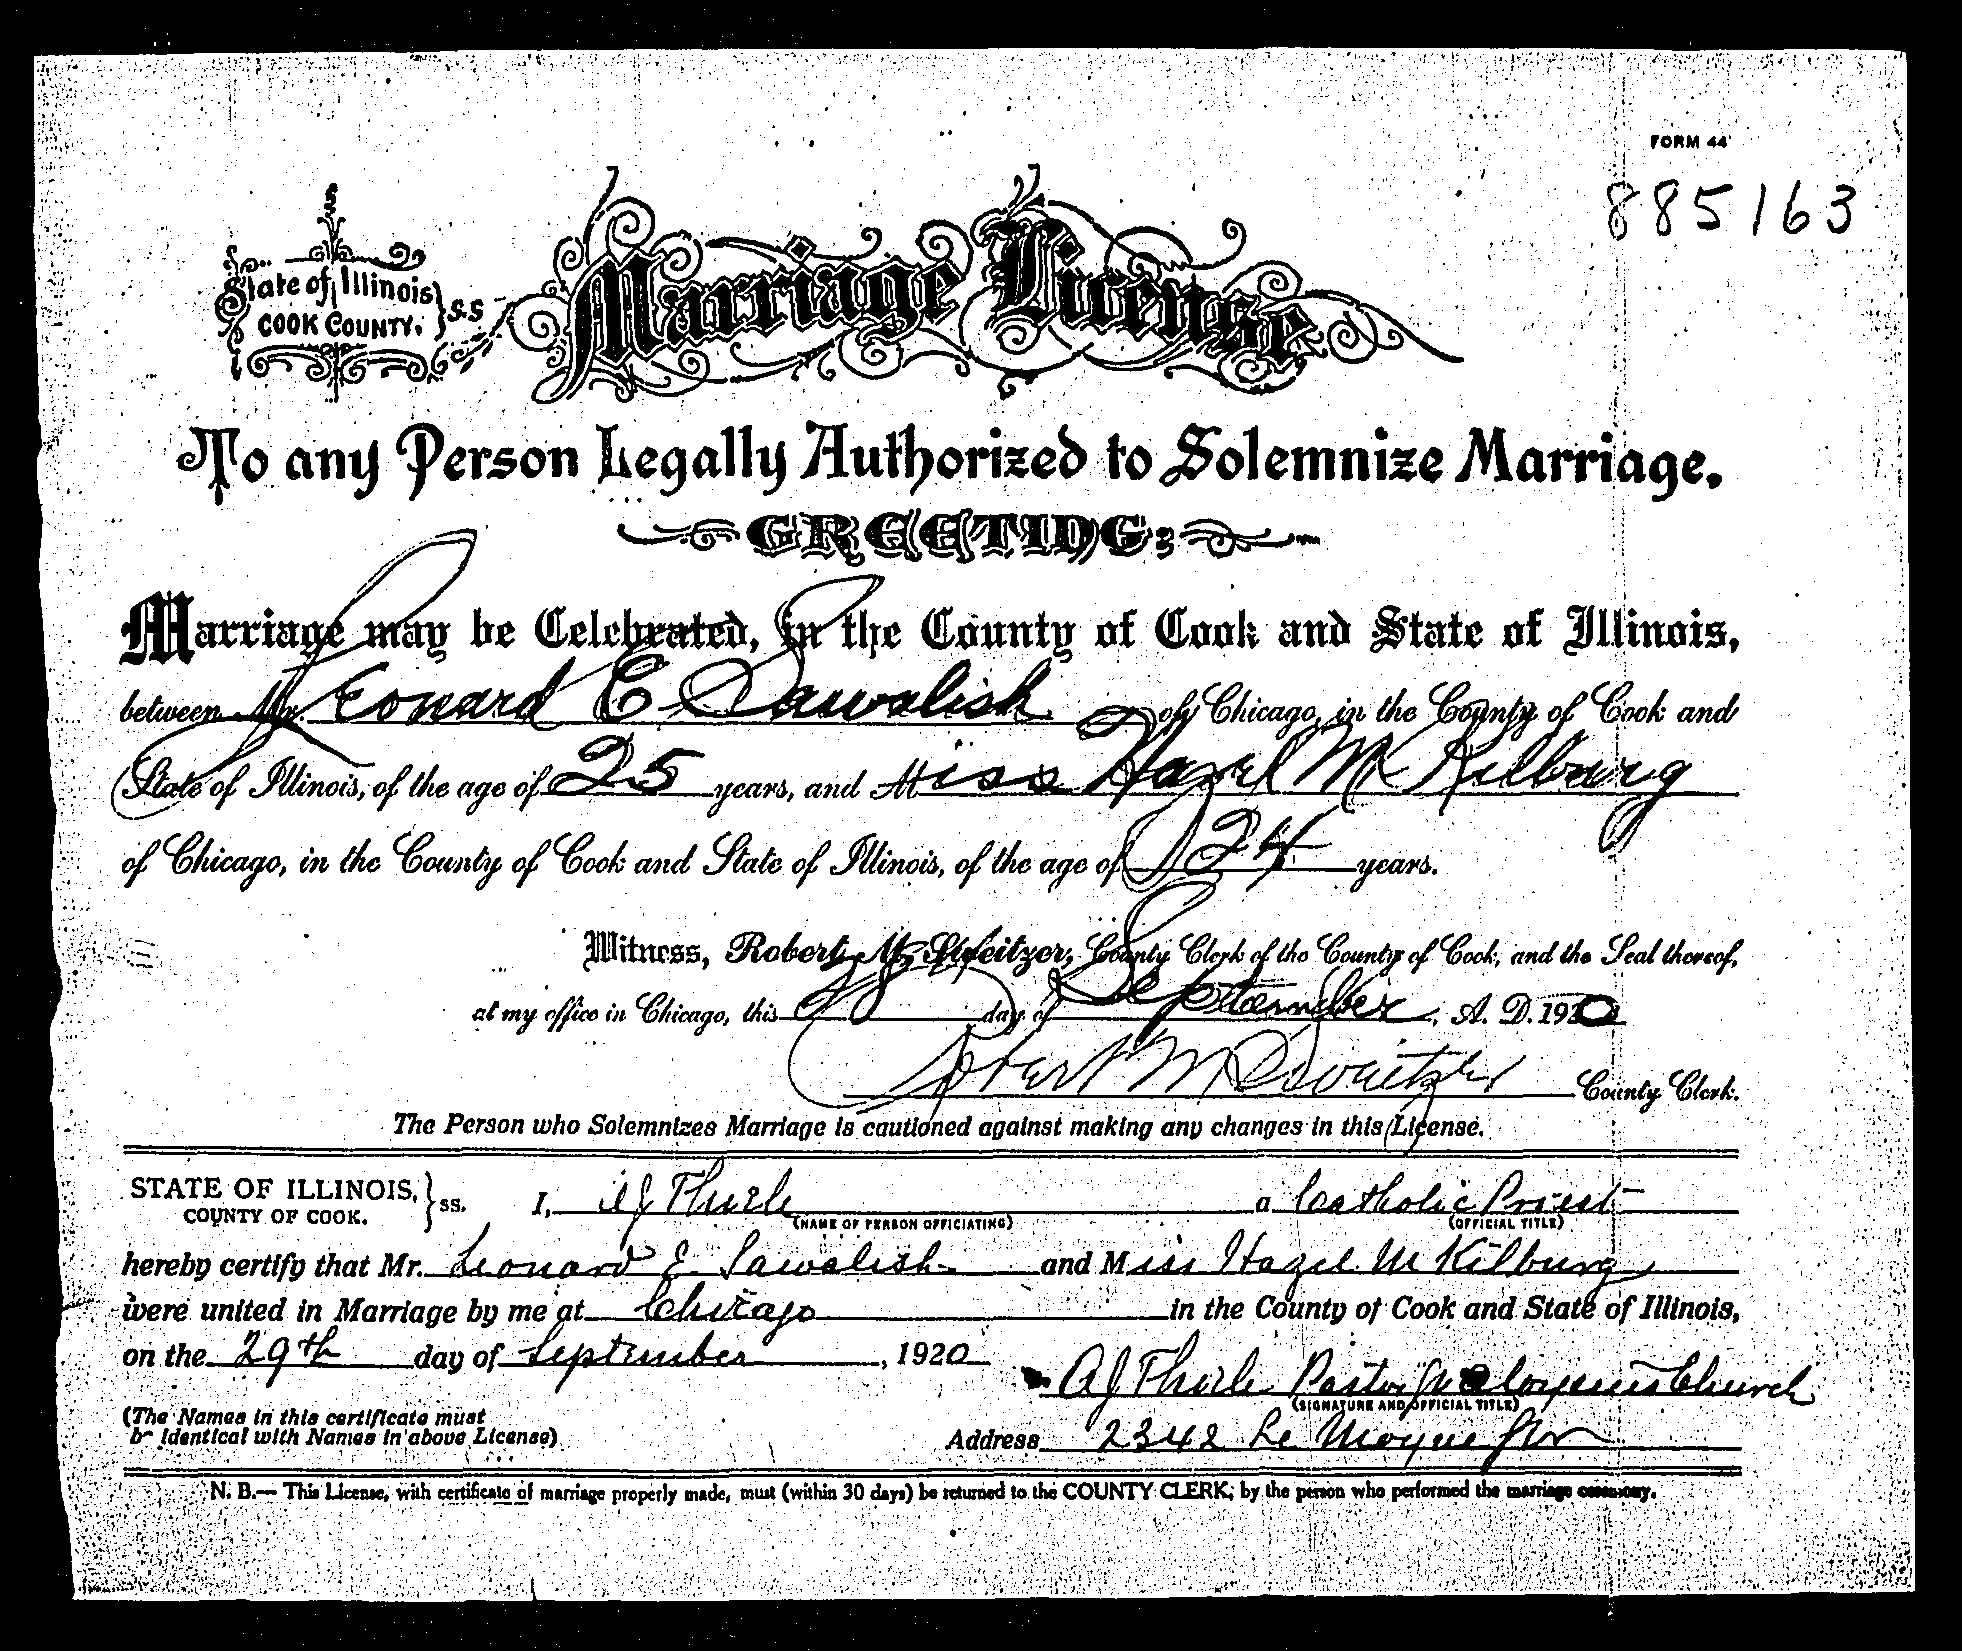 FORM 44
885163
State of Illinois } S.S
COOK COUNTY.
Marriage License
To any Person Legally Authorized to Solemnize Marriage.
GREETING:
Marriage may be Celebrated, in the County of Cook and State of Illinois,
between Mr. Leonard E Sawalish of Chicago, in the County of Cook and
State of Illinois, of the age of 25 years, and Miss Hazel M Kilburg
of Chicago, in the County of Cook and State of Illinois, of the age of 24 years.
Witness, Robert M. Sweitzer, County Clerk of the County of Cook, and the Seal thereof,
at my office in Chicago, this 28 day of September, A. D. 1920
Robert M Sweitzer County Clerk.
The Person who Solemnizes Marriage is cautioned against making any changes in this License.
STATE OF ILLINOIS, } ss. I, A J Thiele a Catholic Priest
COUNTY OF COOK.
(NAME OF PERSON OFFICIATING) (OFFICIAL TITLE)
hereby certify that Mr. Leonard E. Sawalish and Miss Hazel M Kilburg
were united in Marriage by me at Chicago in the County of Cook and State of Illinois,
on the 29th day of September, 1920
A J Thiele Pastor St Aloysius Church
(SIGNATURE AND OFFICIAL TITLE)
(The Names in this certificate must
be identical with Names in above License)
Address 2342 Le Moyne
N. B.— This License, with certificate of marriage properly made, must (within 30 days) be returned to the COUNTY CLERK, by the person who performed the marriage ceremony.